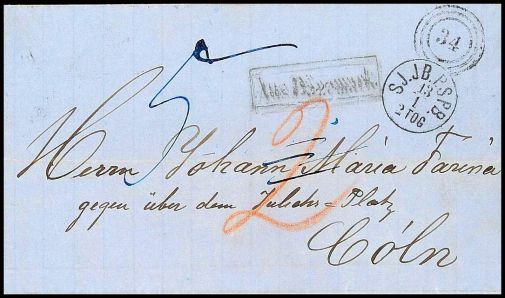 34
S.J.JB.P.SP.B
13
1
2 TOG
5
2
Herrn Johann Maria Farina
gegen über dem Julichs=Platz
Cöln